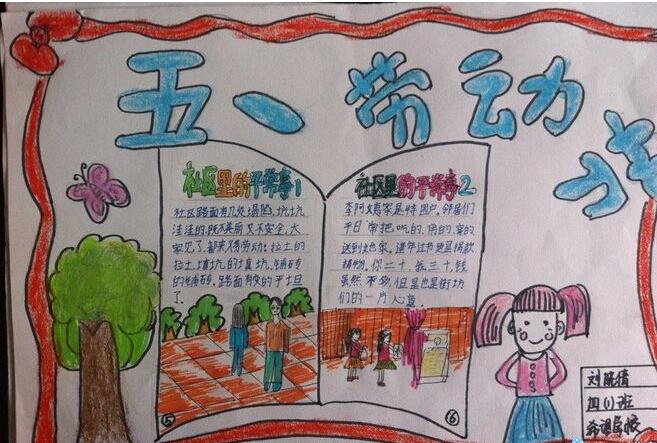 五一劳动
社区里的平常事1
社区路面有几处塌陷,坑坑
洼洼的,既不美丽又不安全,大
家见了,都来义务劳动:拉土的
拉土,填坑的填坑,铺砖
的铺砖,路面有变的平坦
了.
社区里的平常事2
李阿姨家是特困户,邻居们
平日常把吃的、用的、穿的
送到她家,逢年过节更是捐款
捐物,你二十,我三十,钱
虽然不多,但是也是街坊
们的一片心意.
5
6
四(1)班